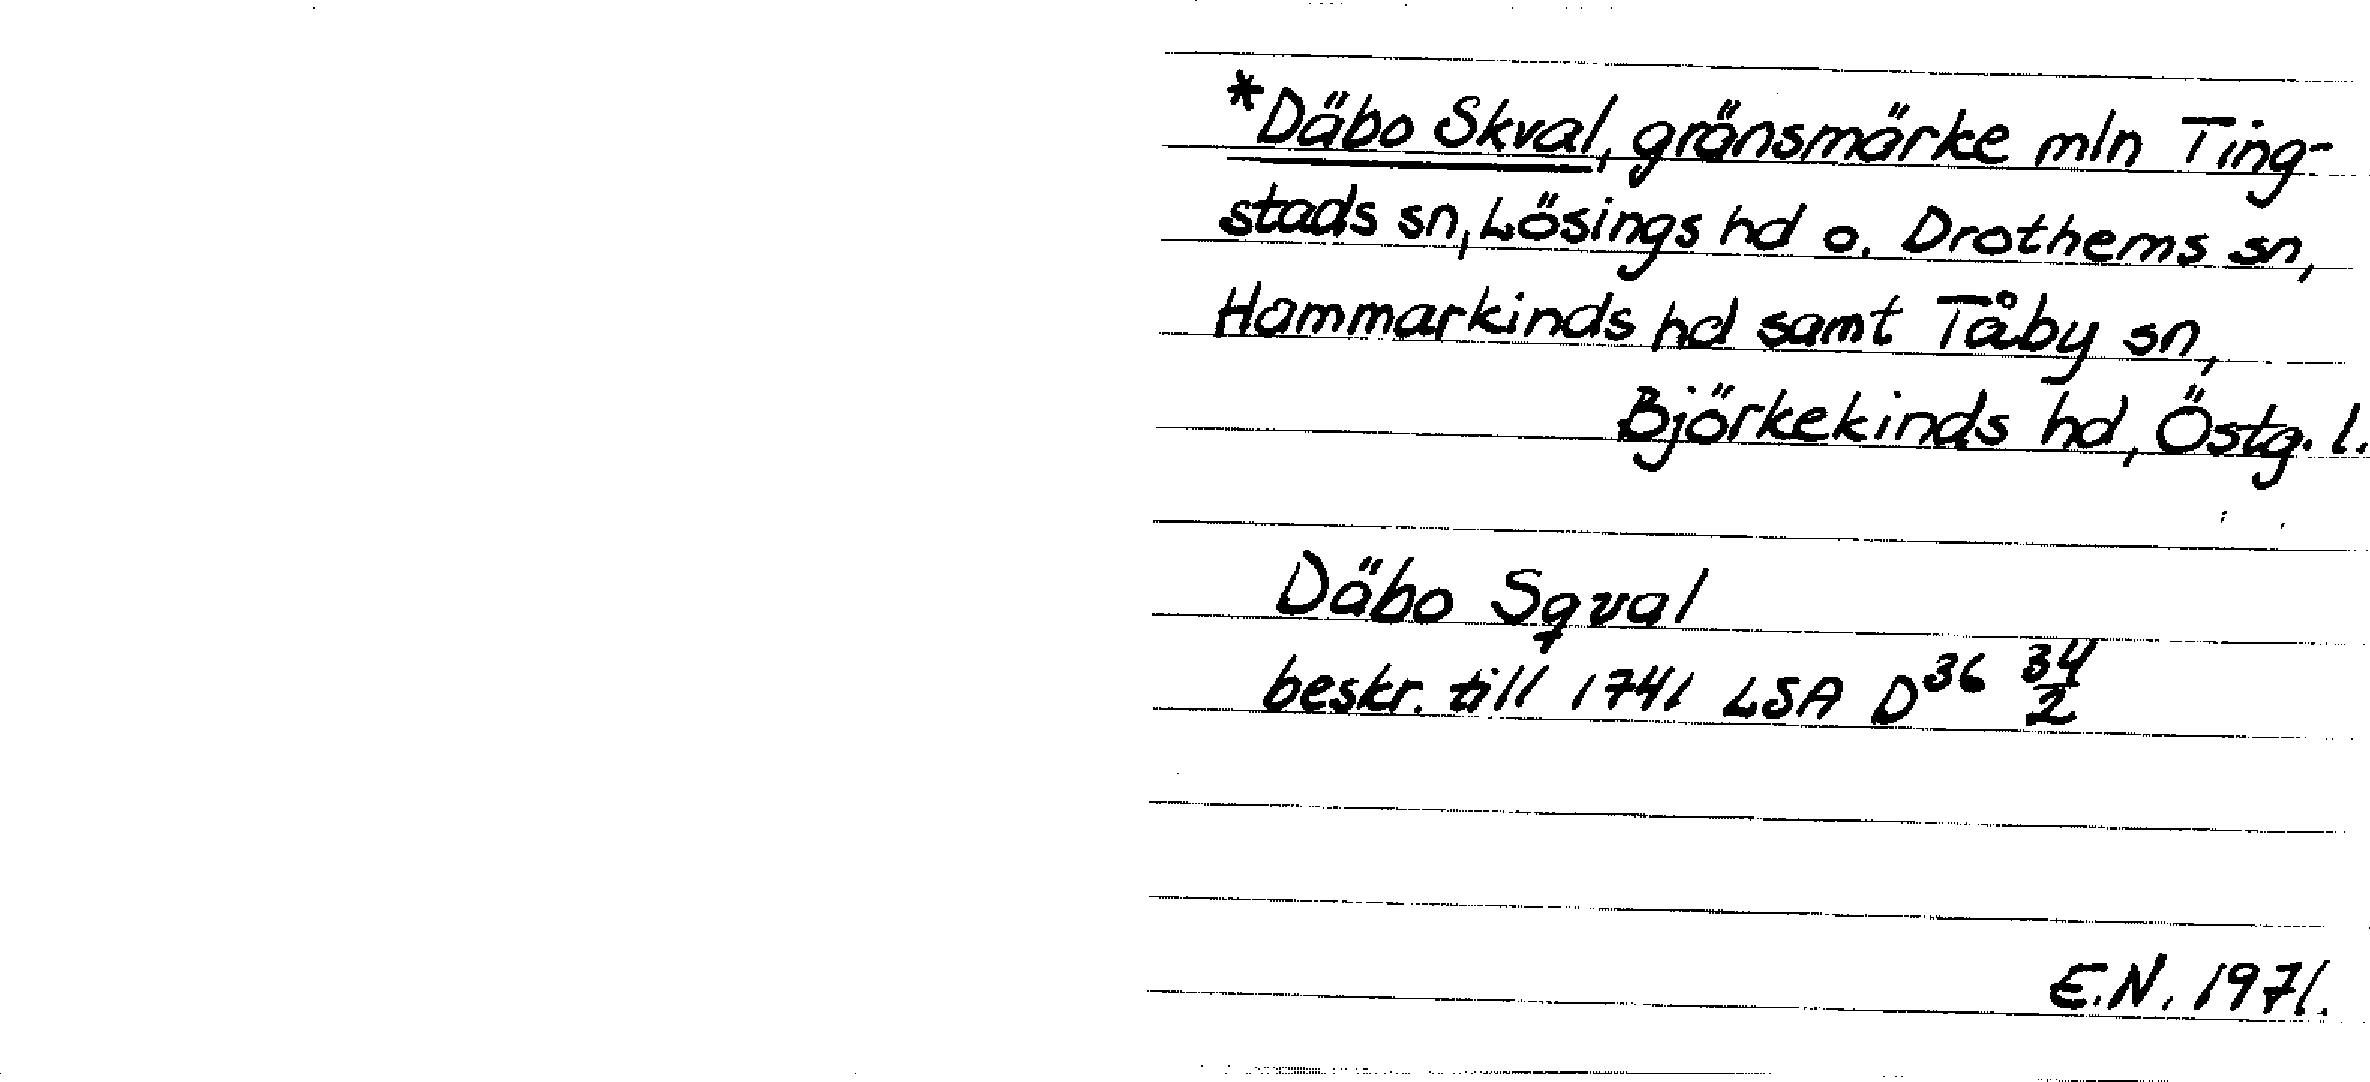 *Däbo Skval, gränsmärke mln Ting-
stads sn, Lösings hd o. Drothems sn,
Hammarkinds hd samt Tåby sn,
Björkekinds hd, Östg. l.
Däbo Sqval
beskr. till 1741 LSA D36 34/2
E.N. 1971.